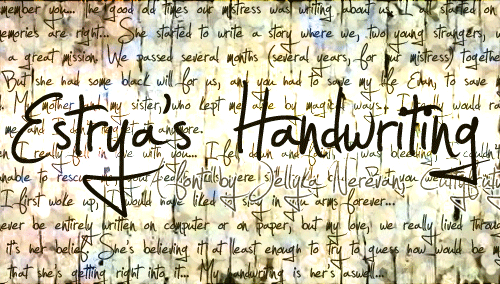 member you... The good old times our mistress was writing about us. I all started on
emories are right... She started to write a story where we, two young strangers, w
a great mission. We passed several months (several years, for our mistress) togethe
But she had some black will for us, and you had to save my life Enan, to save
My mother and my sister who kept me alive by magical ways. I would ra
me and I don't anymore.
Estrya's Handwriting
I really fall in love with you... I fell down and was bleeding couldn't
unable to rescue your
Font by Jellyka Nerevan
I first woke up, I would have liked to stay in your arms forever...
ever be entirely written on computer or on paper, but my love, we really lived throu
it's her belief. She's believing it at least enough to try to guess how would be m
that she's getting right into it... My handwriting is her's aswell...